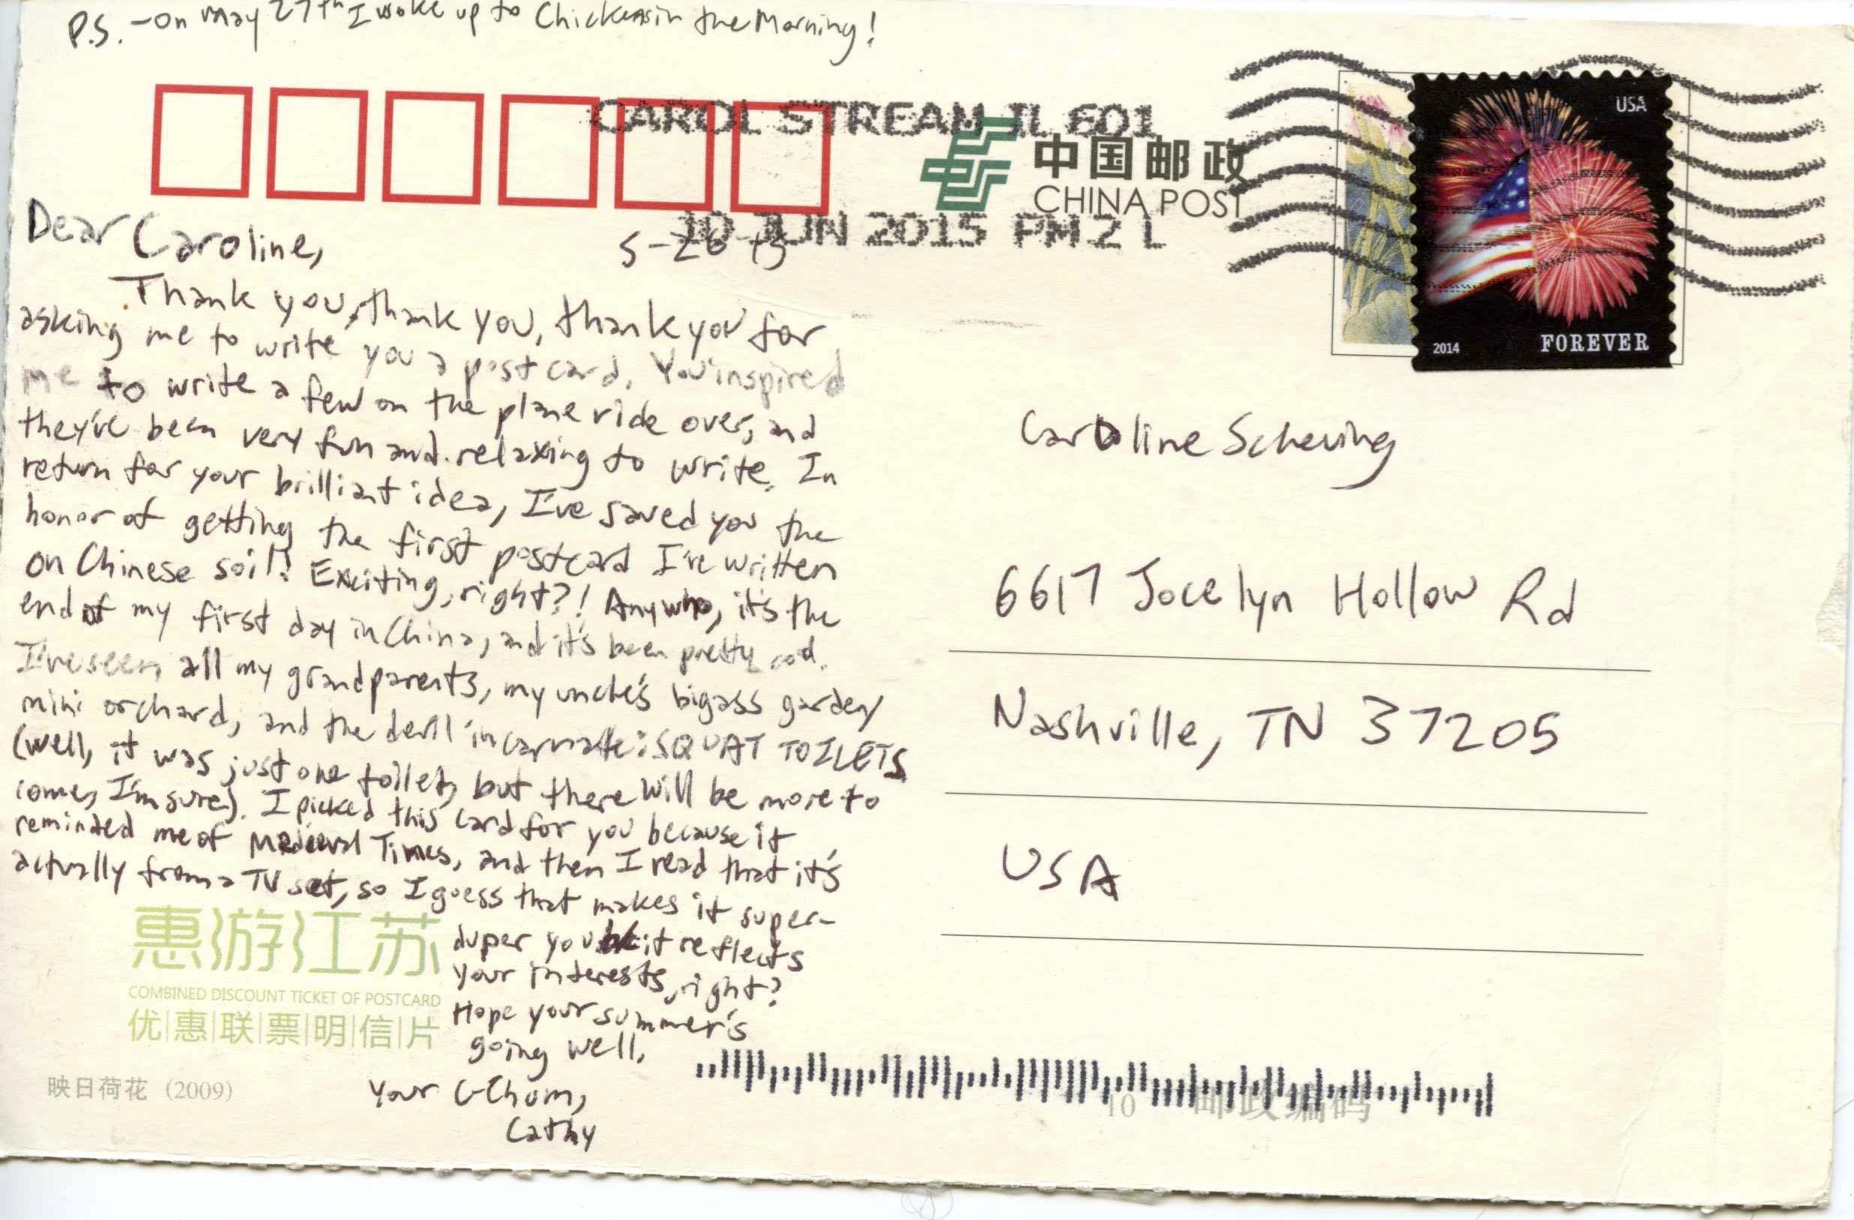 P.S. - On May 27th I woke up to Chickens in the Morning!
CAROL STREAM IL 601
中国邮政
CHINA POST
10 JUN 2015 PM 2 L
USA
2014
FOREVER
Dear Caroline,
5-26-15
Thank you, thank you, thank you for
asking me to write you a postcard. You inspired
me to write a few on the plane ride over, and
they've been very fun and relaxing to write. In
return for your brilliant idea, I've saved you the
honor of getting the first postcard I've written
on Chinese soil! Exciting, right?! Anywho, it's the
end of my first day in China, and it's been pretty cool.
I've seen all my grandparents, my uncle's bigass garden/
mini orchard, and the devil incarnate: SQUAT TOILETS
(well, it was just one toilet, but there will be more to
come, I'm sure). I picked this card for you because it
reminded me of Medieval Times, and then I read that it's
actually from a TV set, so I guess that makes it super-
duper you bc it reflects
your interests, right?
Hope your summer's
going well,
Your C-Chum,
Cathy
Caroline Scheuing
6617 Jocelyn Hollow Rd
Nashville, TN 37205
USA
惠游江苏
COMBINED DISCOUNT TICKET OF POSTCARD
优|惠|联|票|明|信|片
映日荷花 (2009)
10
邮政编码